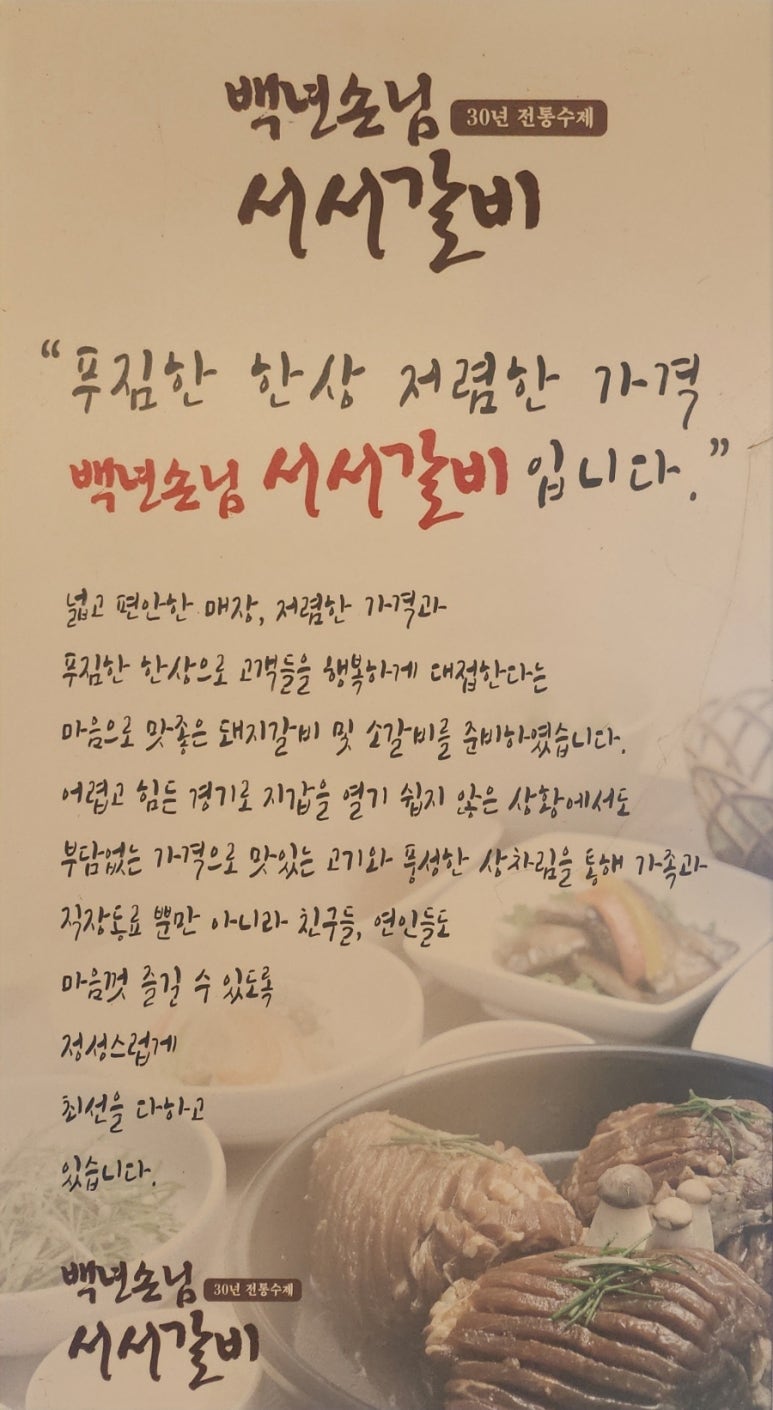 백년손님 30년 전통수제
서서갈비
“푸짐한 한상 저렴한 가격
백년손님 서서갈비 입니다.”
넓고 편안한 매장, 저렴한 가격과
푸짐한 한상으로 고객들을 행복하게 대접한다는
마음으로 맛좋은 돼지갈비 및 소갈비를 준비하였습니다.
어렵고 힘든 경기로 지갑을 열기 쉽지 않은 상황에서도
부담없는 가격으로 맛있는 고기와 풍성한 상차림을 통해 가족과
직장동료 뿐만 아니라 친구들, 연인들도
마음껏 즐길 수 있도록
정성스럽게
최선을 다하고
있습니다.
백년손님 30년 전통수제
서서갈비